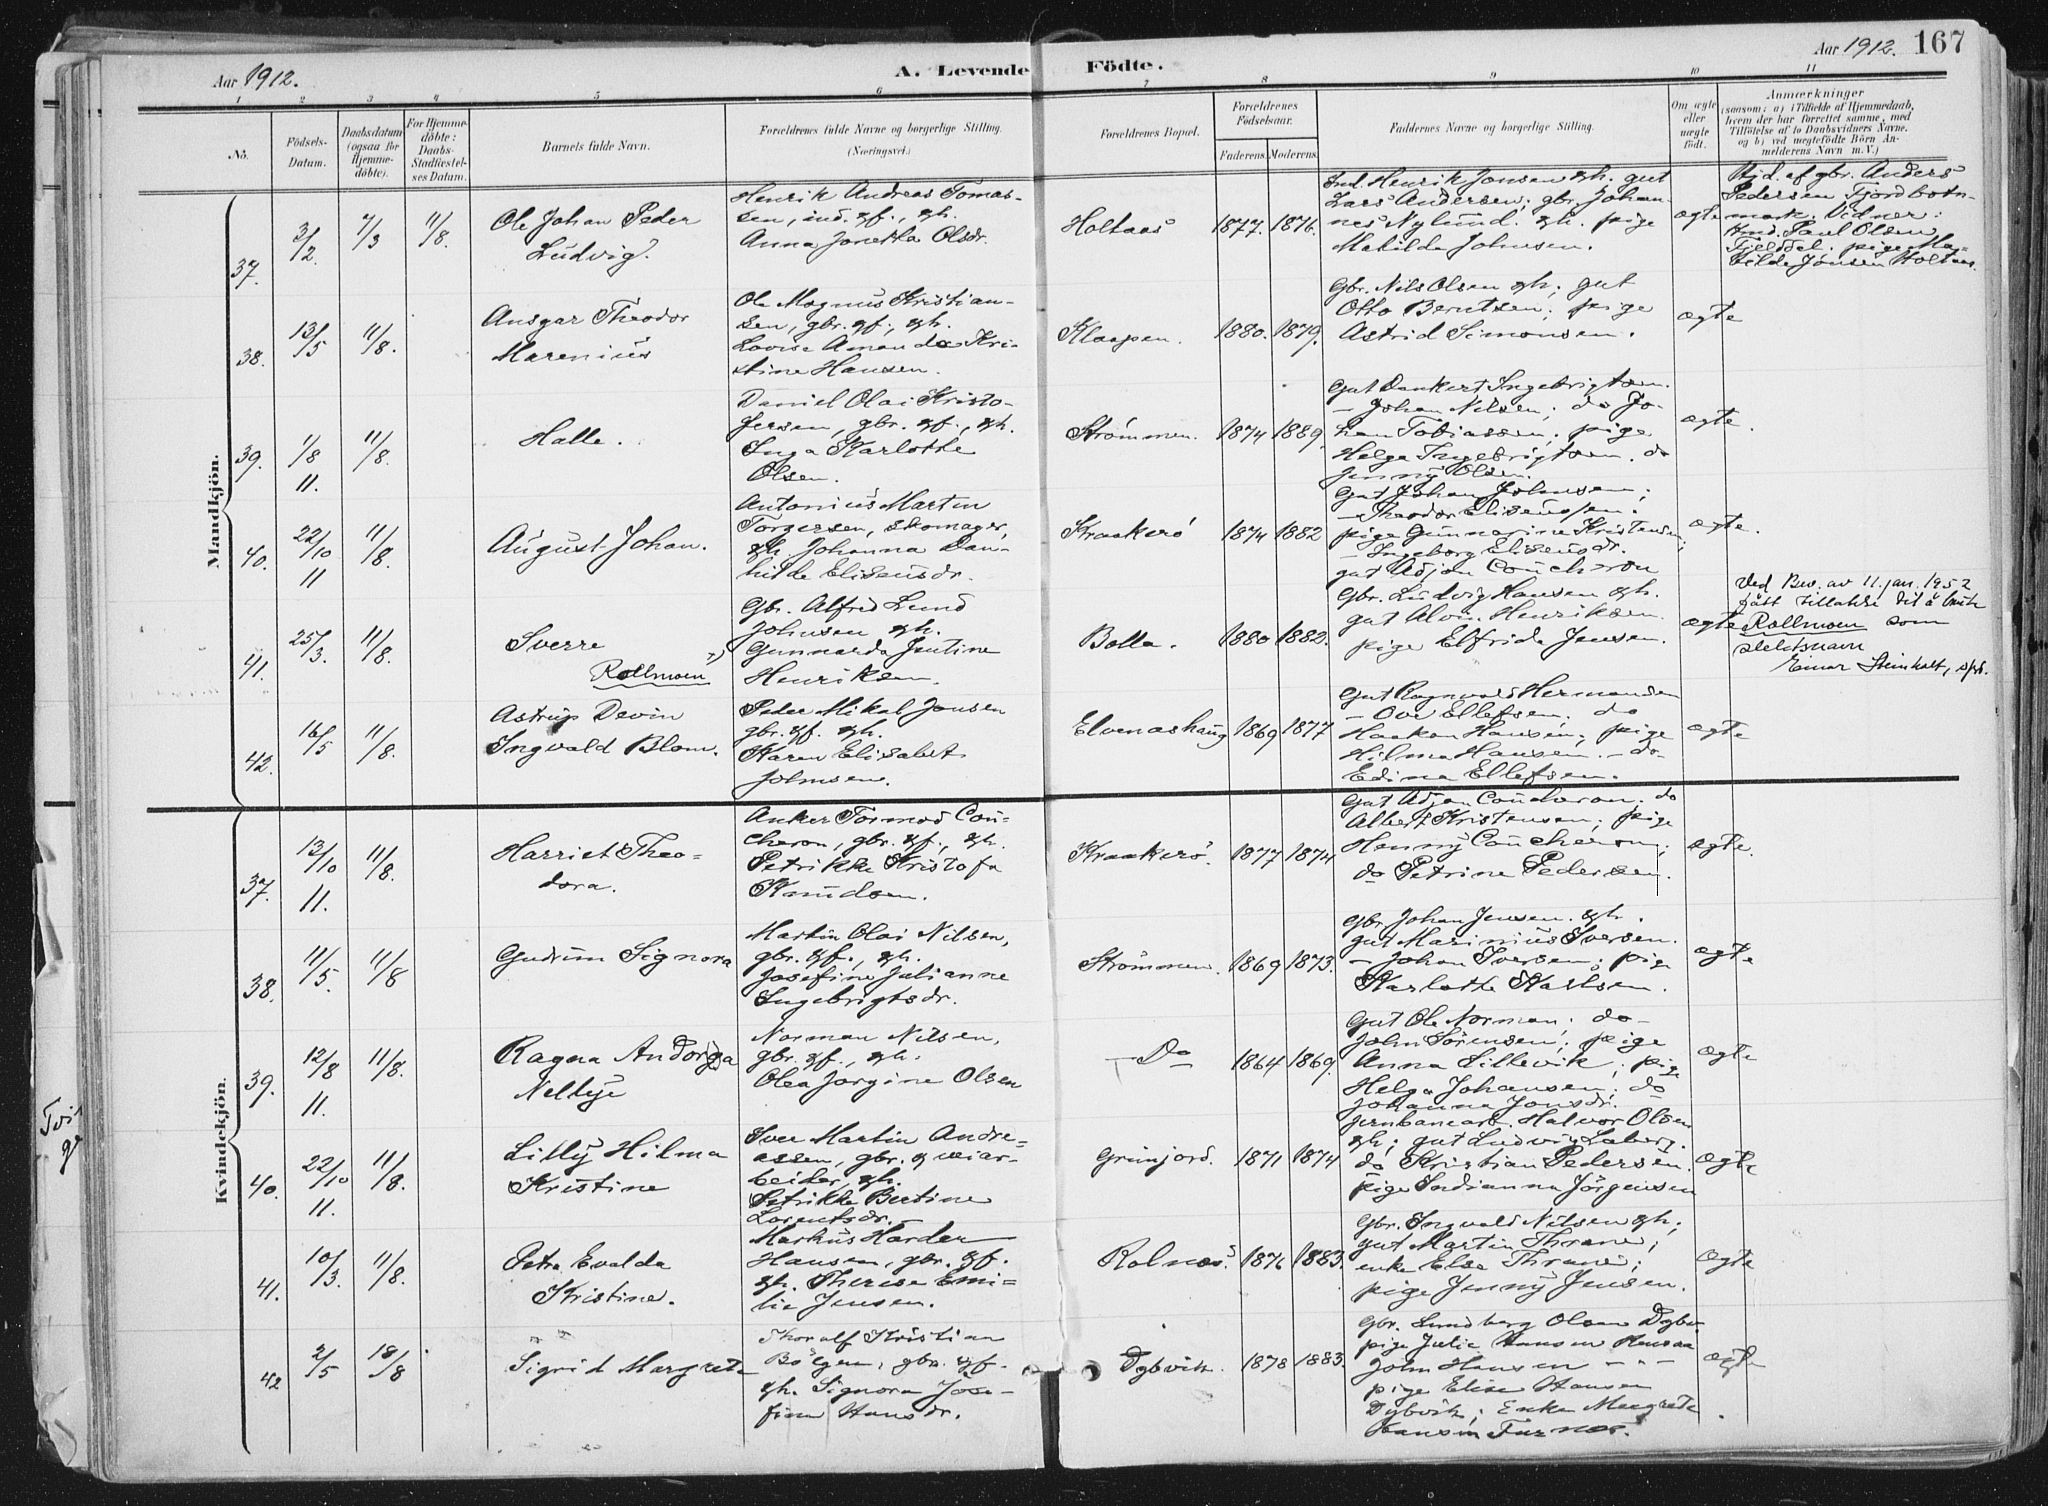 Aar 1912.
A. Levende Födte.
Aar 1912. 167
1 2 3 4 5 6 7 8 9 10 11
No.
Födsels-
Datum.
Daabsdatum
(ogsaa for
Hjemme-
döbte).
For Hjemme-
döbte:
Daabs-
Stadfæstel-
ses Datum.
Barnets fulde Navn.
Forældrenes fulde Navne og borgerlige Stilling.
(Næringsvei.)
Forældrenes Bopæl.
Forældrenes
Födselsaar.
Faderens. Moderens.
Faddernes Navne og borgerlige Stilling.
Om ægte
eller
uægte
födt.
Anmærkninger
(saasom: a) i Tilfælde af Hjemmedaab,
hvem der har forrettet samme, med
Tilföielse af to Daabsvidners Navne.
og b) ved uægtefödte Börn An-
melderens Navn m. V.)
Mandkjön.
37.
3/2
7/3
11/8.
Ole Johan Peder
Ludvig.
Henrik Andreas Tomas-
sen, ind. gf., gh.
Anna Jonetta Olsdr.
Holtaas
1877. 1876.
Ind. Henrik Jonsen gh. gut
Lars Andersen; gbr. Johan-
nes Nylund. gh. pige
Matilda Johnsen.
ægte
Hjd. af gbr. Anders
Pedersen Fjordbotn-
mark. Vidner:
Hmd. Paul Olsen
Fjelddal. pige Ma-
tilde Jonsen Holtaas.
38.
13/5
11/8.
Ansgar Theodor
Marenius
Ole Magnus Kristian-
sen, gbr. gf., gh.
Lovise Amanda Kri-
stine Hansen.
Klaapen.
1880. 1879.
Gbr. Nils Olsen gh; gut
Otto Berntsen; pige
Astrid Simonsen.
ægte
39.
1/8
11.
11/8.
Halle.
Daniel Olai Kristo-
fersen, gbr. gf., gh.
Inga Karlotte
Olsen.
Strømmen.
1874 1889.
Gut Dankert Ingebrigtsen.
— Johan Nilsen; do Jo-
han Tobiassen; pige
Helga Ingebrigtsen. do
Jenny Olsen.
ægte.
40.
22/10
11
11/8.
August Johan.
Antonius Martin
Torgersen, skomager,
gh. Johanna Dan-
hilde Eliseusdr.
Kraakerö
1874 1882
Gut Johan Johnsen;
— Theodor Eliseussen.
pige Gunnarine Kristensen;
— Ingeborg Eliseusdr.
gut Adjon Coucheron
ægte.
41.
25/3.
11/8.
Sverre
Rollmoen
Gbr. Alfred Lund
Johnsen gh.
Gunnarda Jentine
Henriksen.
Bolla.
1880 1882.
Gbr. Ludvig Hansen gh.
gut Alvin Henriksen.
pige Elfrida Jensen.
ægte
Ved Bev. av 11. jan. 1952
gått tillatelse til å bruke
Rollmoen som
slektsnavn
Einar Steinholt, spr.
42.
16/5
11/8.
Astrup Devin
Ingvald Blom.
Peder Mikal Jonsen
gbr. gf. gh.
Karen Elisabet
Johnsen.
Elvenæshaug
1869 1877
Gut Ragnvald Hermansen
— Ove Ellefsen; do
Haakon Hansen; pige
Hilma Hansen. — do
Edina Ellefsen.
ægte
Kvindekjön.
37.
13/10
11.
11/8.
Harriet Theo-
dora.
Anker Tormod Cou-
cheron, gbr. gf., gh.
Petrikke Kristofa
Knudsen.
Kraakerö.
1877 1874
Gut Adjon Coucheron. do
Albert Kristensen; pige
Henny Coucheron;
do Petrine Pedersen.
ægte.
38.
11/5.
11/8
Gudrun Signora
Martin Olai Nilsen,
gbr. gf., gh.
Josefine Julianne
Ingebrigtsdr.
Strömmen.
1869 1873.
Gbr. Johan Jensen. gh.
gut Marinius Iversen.
— Johan Iversen; pig
Karlotte Karlsen.
ægte
39.
12/8
11.
11/8.
Ragna Andorga
Neltye
Norman Nilsen,
gbr. gf., gh.
Olea Jorgine Olsen
— Do
1864 1869.
Gut Ole Norman; do—
John Sörensen; pige
Anna Lillevik; pige
Helga Johansen; do
Johanna Jonsdr.
ægte
40.
22/10
11.
11/8.
Lilly Hilma
Kristine
Iver Martin Andre-
assen, gbr. og veiar-
beider, gh.
Petrikke Bertine
Lorentsdr.
Grunfjord.
1871 1874
Jernbanearb. Halvor Olsen
gh; gut Ludvig Laberg.
do Kristian Pedersen.
pige Indianna Jörgensen
ægte
41.
10/3.
11/8.
Petra Evalda
Kristine.
Markus Harder
Hansen, gbr. gf.
gh. Therese Emi-
lie Jensen.
Rolnæs.
1876 1883.
Gbr. Ingvald Nilsen gh;
gut Martin Thrane;
enke Else Thrane;
pige Jenny Jensen.
ægte
42
2/5
18/8
Sigrid Margrete
Thoralf Kristian
Börgen, gbr. gf.
gh. Signora Jose-
fine Hansdr.
Dybvik.
1878 1883.
Gbr. Lundberg Olsen Dybv.
pige Julie Hansen
John Hansen — " —
pige Elise Hansen
Dybvik; Enke Margrete
Hansen Furnes.
ægte